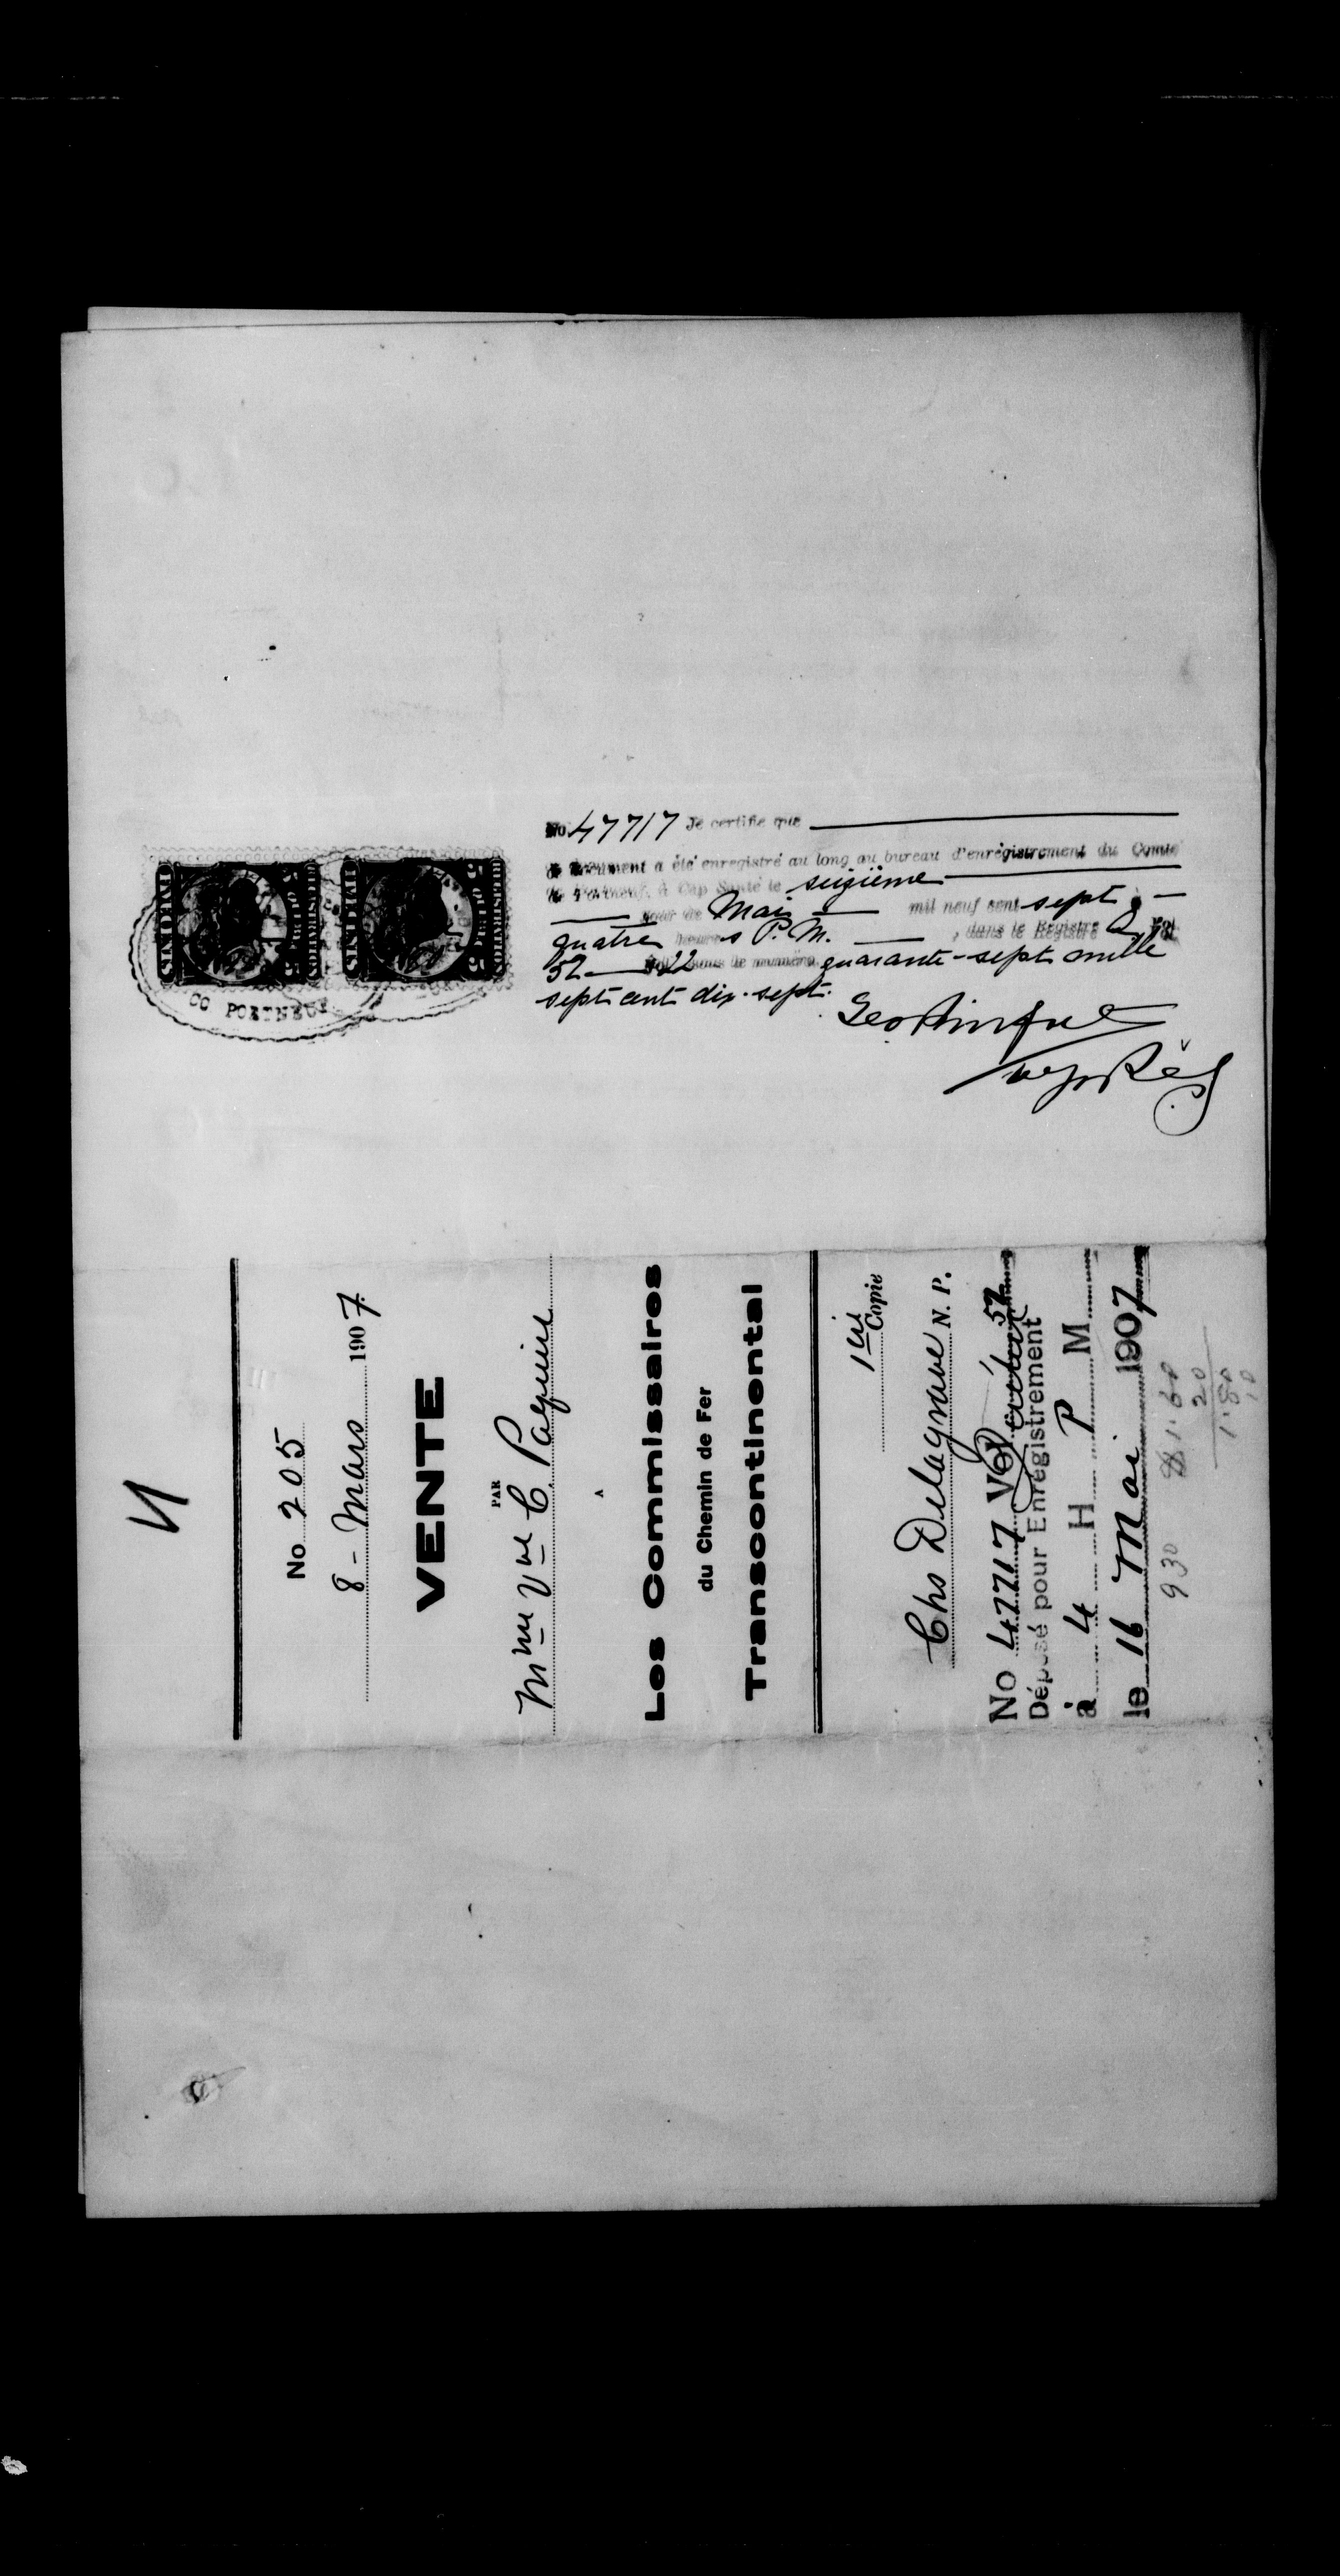 No 47717 Je certifie que
document a été enregistré au long au bureau d'enrégistrement du Comté
de Portneuf, à Cap Santé le seizième
jour de Mai mil neuf cent sept à
quatre heures P.M. , dans le Registre
52 22 sous le numéro quarante-sept mille
sept cent dix-sept.
Dep Rég
CO PORTNEUF
No 205
8 - Mars 1907.
VENTE
PAR
Mme Vve C. Paquin
A
Les Commissaires
du Chemin de Fer
Transcontinental
1ère
Copie
Chs Delagrave N. P.
No 47717 Vol 52
Déposé pour Enrégistrement
à 4 H P M
le 16 Mai 1907
930 $1.60
20
1.80
10